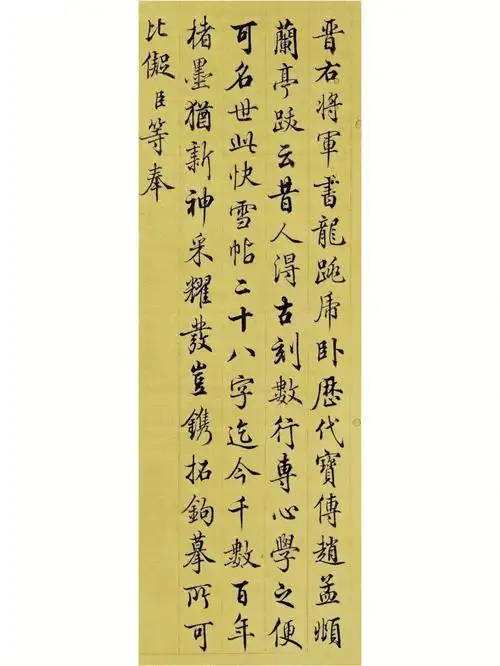 晋右將軍書龍跳虎臥歷代寶傳趙孟頫
蘭亭跋云昔人得古刻數行專心學之便
可名世此快雪帖二十八字迄今千數百年
楮墨猶新神采耀發豈鐫拓鉤摹所可
比儗臣等奉